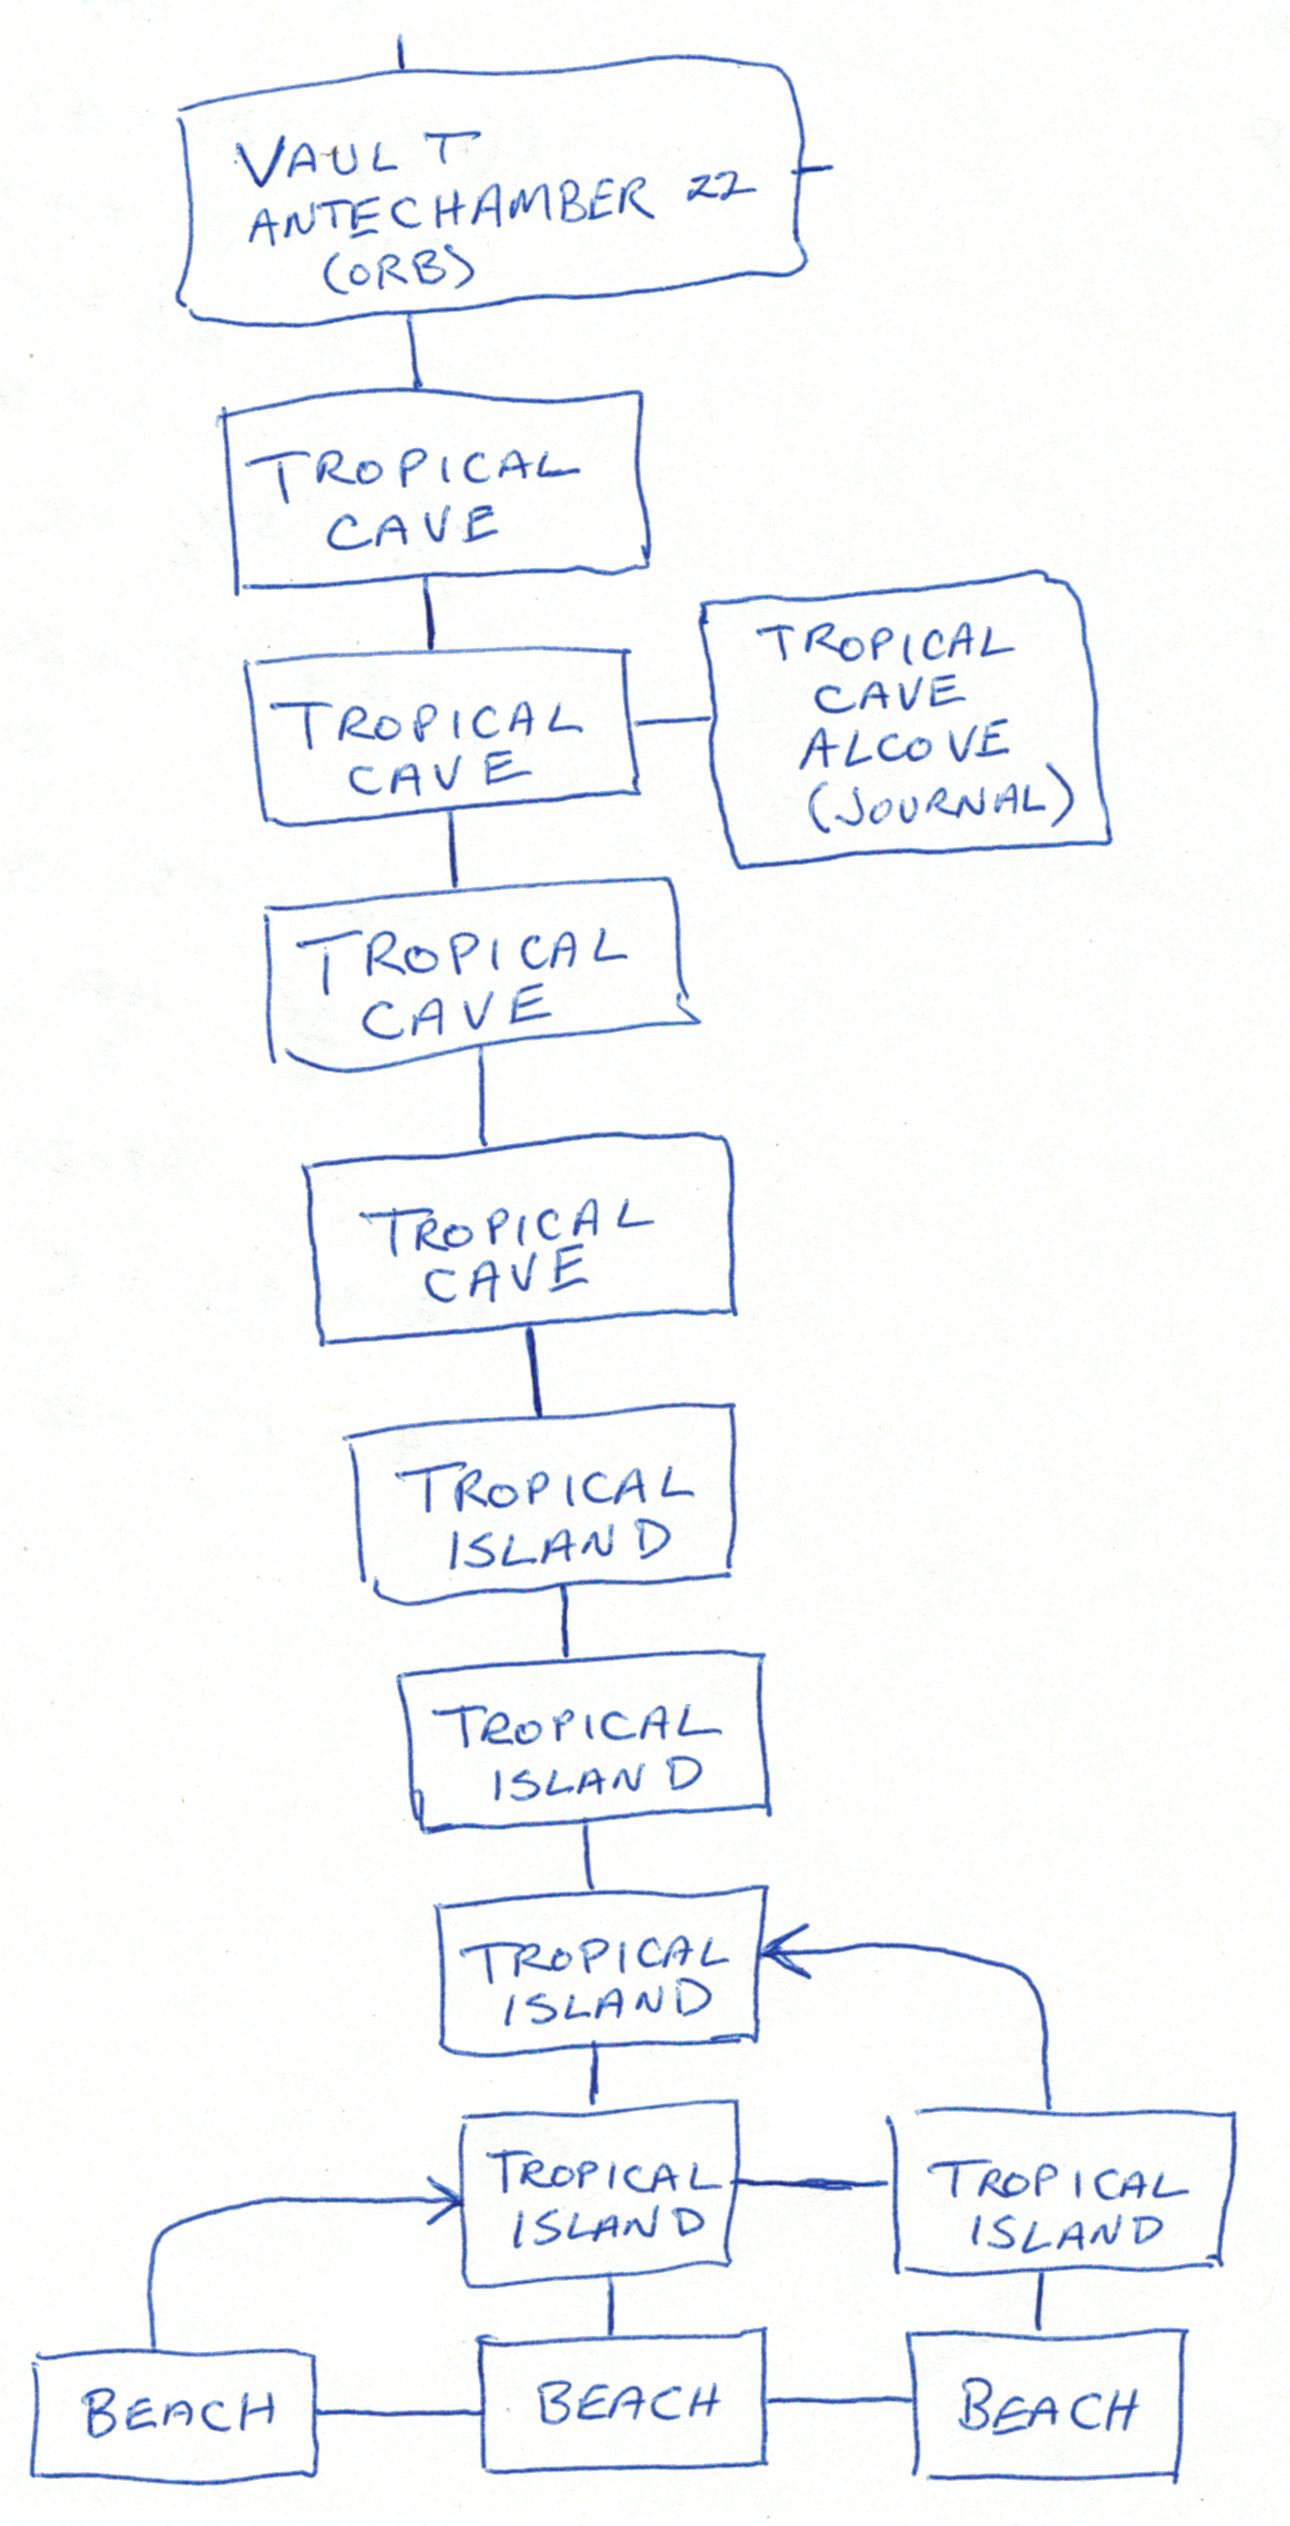 VAULT
ANTECHAMBER 22
(ORB)
TROPICAL
CAVE
TROPICAL
CAVE
TROPICAL
CAVE
ALCOVE
(JOURNAL)
TROPICAL
CAVE
TROPICAL
CAVE
TROPICAL
ISLAND
TROPICAL
ISLAND
TROPICAL
ISLAND
TROPICAL
ISLAND
TROPICAL
ISLAND
BEACH
BEACH
BEACH